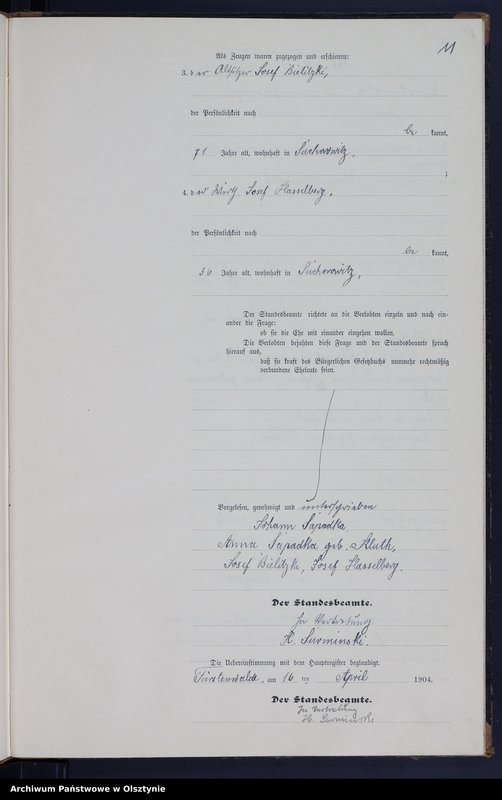 11
Als Zeugen waren zugezogen und erschienen:
3. d er Altsitzer Josef Bielitzki,
der Persönlichkeit nach
be kannt,
71 Jahre alt, wohnhaft in
;
4. d er Wirth Josef Hasselberg,
der Persönlichkeit nach
be kannt,
36 Jahre alt, wohnhaft in
Der Standesbeamte richtete an die Verlobten einzeln und nach ein-
ander die Frage:
ob sie die Ehe mit einander eingehen wollen.
Die Verlobten bejahten diese Frage und der Standesbeamte sprach
hierauf aus,
daß sie kraft des Bürgerlichen Gesetzbuchs nunmehr rechtmäßig
verbundene Eheleute seien.
Vorgelesen, genehmigt und unterschrieben
Johann Sapadka
Anna Sapadka geb. Kluth,
Josef Bielitzki, Josef Hasselberg.
Der Standesbeamte.
In Vertretung
H. Surminski.
Die Uebereinstimmung mit dem Hauptregister beglaubigt
Fürstenwalde, am 16 ten April 1904.
Der Standesbeamte.
In Vertretung
H. Surminski
Archiwum Państwowe w Olsztynie